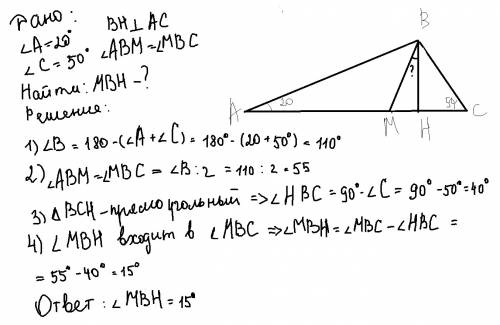 Дано: BH⊥AC
∠A=20° ∠ABM=∠MBC
∠C=50°
Найти: MBH-?
Решение:
1) ∠B = 180-(∠A+∠C) = 180°-(20+50°) = 110°
2) ∠ABM=∠MBC = ∠B:2 = 110:2=55
3) △BCH-прямоугольный =>∠HBC=90°-∠C= 90°-50°=40°
4) ∠MBH входит в ∠MBC =>∠MBH=∠MBC-∠HBC =
=55°-40°=15°
Ответ: ∠MBH=15°
B
?
A 20 M H 50 C